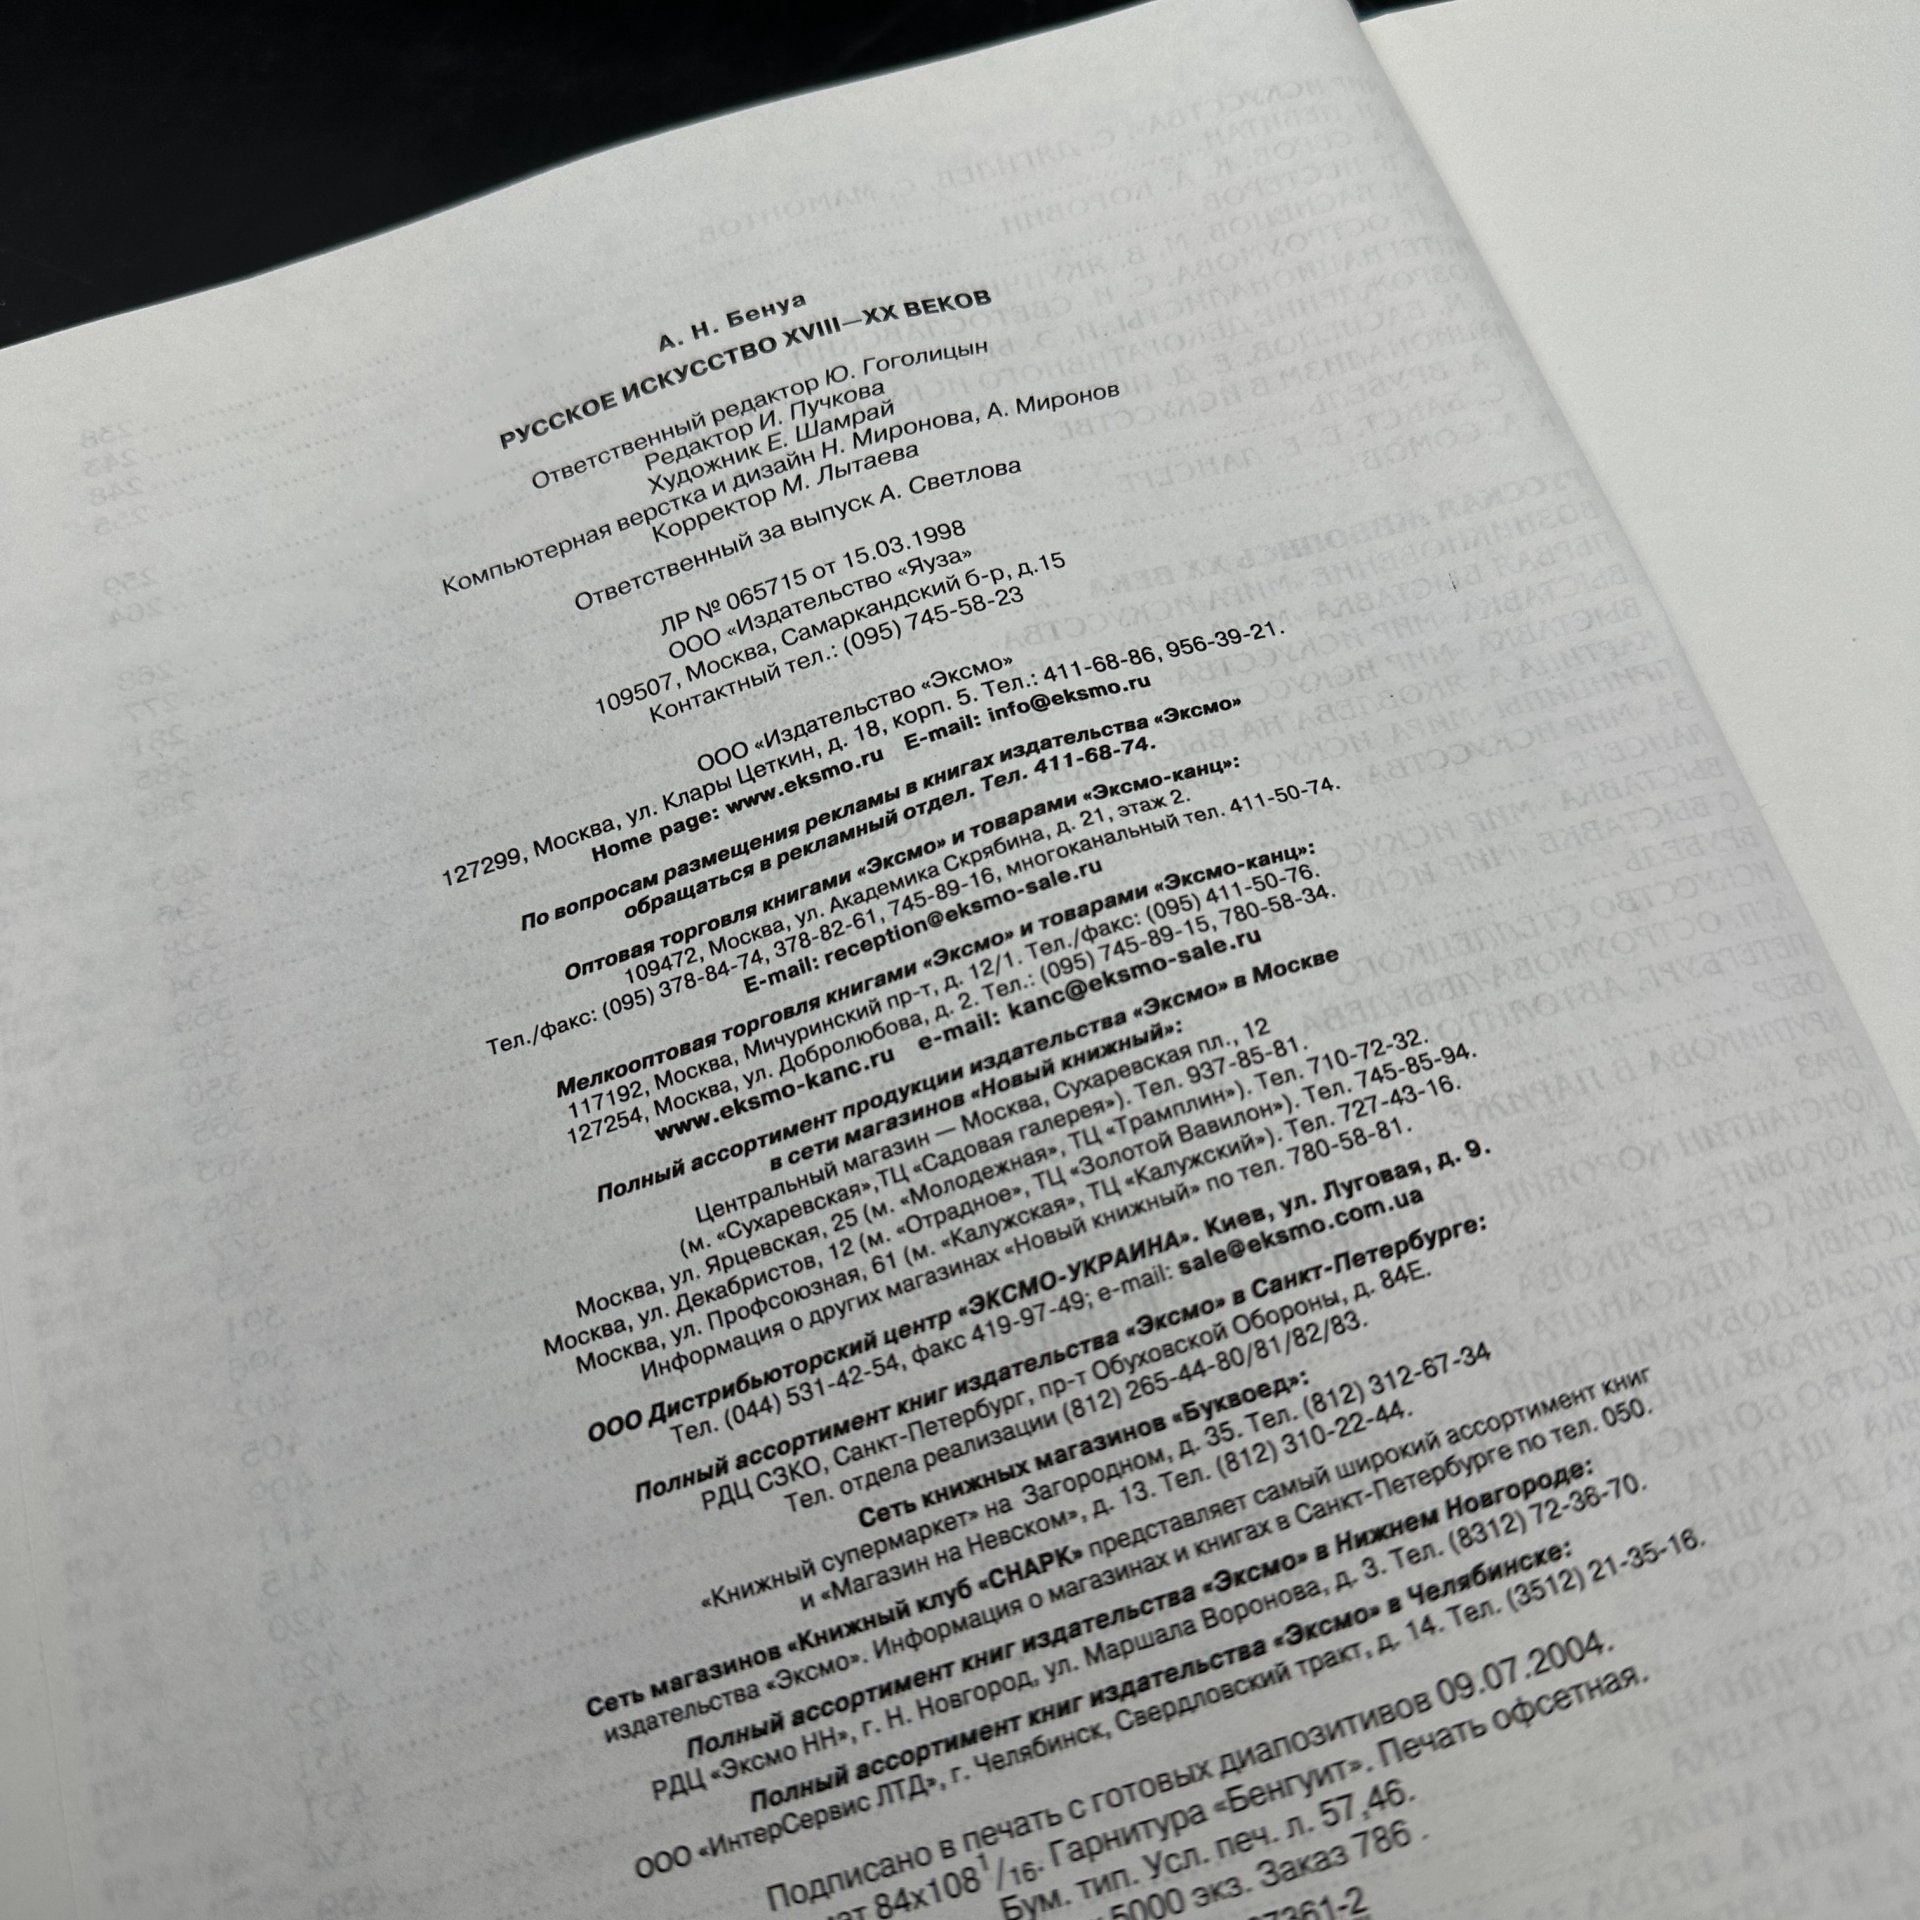 А. Н. Бенуа
РУССКОЕ ИСКУССТВО XVIII—XX ВЕКОВ
Ответственный редактор Ю. Гоголицын
Редактор И. Пучкова
Художник Е. Шамрай
Компьютерная верстка и дизайн Н. Миронова, А. Миронов
Корректор М. Лытаева
Ответственный за выпуск А. Светлова
ЛР № 065715 от 15.03.1998
ООО «Издательство «Яуза»
109507, Москва, Самаркандский б-р, д.15
Контактный тел.: (095) 745-58-23
ООО «Издательство «Эксмо»
127299, Москва, ул. Клары Цеткин, д. 18, корп. 5. Тел.: 411-68-86, 956-39-21.
Home page: www.eksmo.ru E-mail: info@eksmo.ru
По вопросам размещения рекламы в книгах издательства «Эксмо»
обращаться в рекламный отдел. Тел. 411-68-74.
Оптовая торговля книгами «Эксмо» и товарами «Эксмо-канц»:
109472, Москва, ул. Академика Скрябина, д. 21, этаж 2.
Тел./факс: (095) 378-84-74, 378-82-61, 745-89-16, многоканальный тел. 411-50-74.
E-mail: reception@eksmo-sale.ru
Мелкооптовая торговля книгами «Эксмо» и товарами «Эксмо-канц»:
117192, Москва, Мичуринский пр-т, д. 12/1. Тел./факс: (095) 411-50-76.
127254, Москва, ул. Добролюбова, д. 2. Тел.: (095) 745-89-15, 780-58-34.
www.eksmo-kanc.ru e-mail: kanc@eksmo-sale.ru
Полный ассортимент продукции издательства «Эксмо» в Москве
в сети магазинов «Новый книжный»:
Центральный магазин — Москва, Сухаревская пл., 12
(м. «Сухаревская»,ТЦ «Садовая галерея»). Тел. 937-85-81.
Москва, ул. Ярцевская, 25 (м. «Молодежная», ТЦ «Трамплин»). Тел. 710-72-32.
Москва, ул. Декабристов, 12 (м. «Отрадное», ТЦ «Золотой Вавилон»). Тел. 745-85-94.
Москва, ул. Профсоюзная, 61 (м. «Калужская», ТЦ «Калужский»). Тел. 727-43-16.
Информация о других магазинах «Новый книжный» по тел. 780-58-81.
ООО Дистрибьюторский центр «ЭКСМО-УКРАИНА». Киев, ул. Луговая, д. 9.
Тел. (044) 531-42-54, факс 419-97-49; e-mail: sale@eksmo.com.ua
Полный ассортимент книг издательства «Эксмо» в Санкт-Петербурге:
РДЦ СЗКО, Санкт-Петербург, пр-т Обуховской Обороны, д. 84Е.
Тел. отдела реализации (812) 265-44-80/81/82/83.
Сеть книжных магазинов «Буквоед»:
«Книжный супермаркет» на Загородном, д. 35. Тел. (812) 312-67-34
и «Магазин на Невском», д. 13. Тел. (812) 310-22-44.
Сеть магазинов «Книжный клуб «СНАРК» представляет самый широкий ассортимент книг
издательства «Эксмо». Информация о магазинах и книгах в Санкт-Петербурге по тел. 050.
Полный ассортимент книг издательства «Эксмо» в Нижнем Новгороде:
РДЦ «Эксмо НН», г. Н. Новгород, ул. Маршала Воронова, д. 3. Тел. (8312) 72-36-70.
Полный ассортимент книг издательства «Эксмо» в Челябинске:
ООО «ИнтерСервис ЛТД», г. Челябинск, Свердловский тракт, д. 14. Тел. (3512) 21-35-16.
Подписано в печать с готовых диапозитивов 09.07.2004.
84х108 1/16. Гарнитура «Бенгуит». Печать офсетная.
Бум. тип. Усл. печ. л. 57,46.
5000 экз. Заказ 786 .